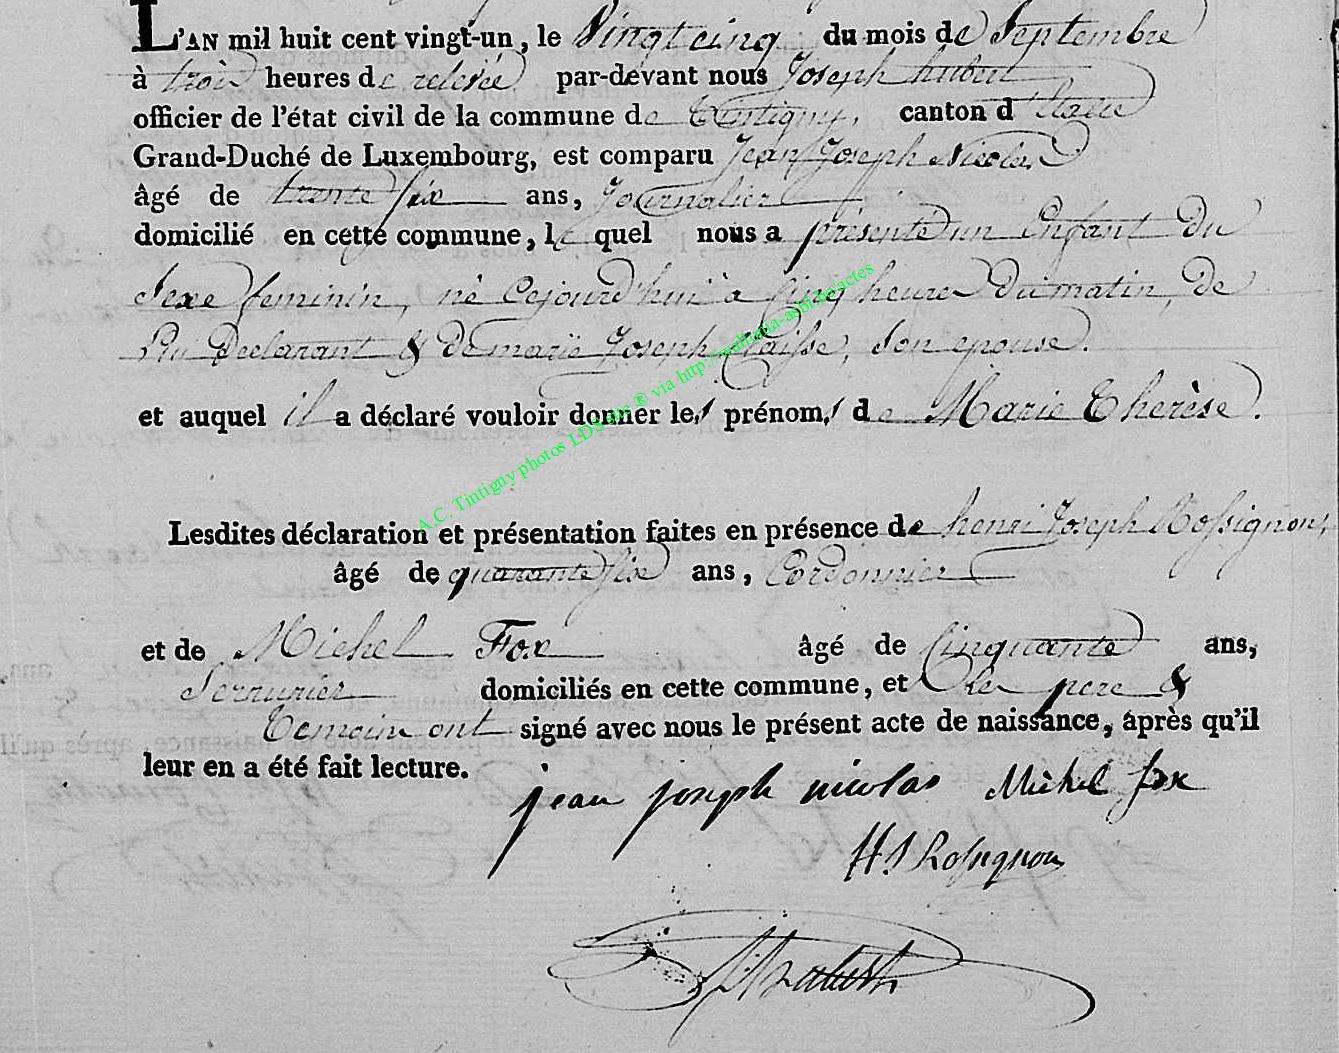 L'AN mil huit cent vingt-un, le Vingt cinq du mois de Septembre
à trois heures de relevée par-devant nous Joseph hubert
officier de l'état civil de la commune de Tintigny, canton d'Etalle
Grand-Duché de Luxembourg, est comparu Jean Joseph Nicolas
âgé de trente six ans, Journalier
domicilié en cette commune, le quel nous a présenté un Enfant Du
Sexe feminin, né Cejourd'hui à Cinq heures Du matin, De
Lui Declarant & De marie Joseph Claisse, Son epouse.
et auquel il a déclaré vouloir donner les prénoms de Marie Therèse.
A.C. Tintigny photos LDS site ® via http://
Lesdites déclaration et présentation faites en présence de henri Joseph Rossignon,
âgé de quarante six ans, Cordonnier
et de Michel Fox âgé de Cinquante ans,
Serrurier domiciliés en cette commune, et les pere &
Temoins ont signé avec nous le présent acte de naissance, après qu'il
leur en a été fait lecture.
jean joseph nicolas Michel fox
HJ Rossignon